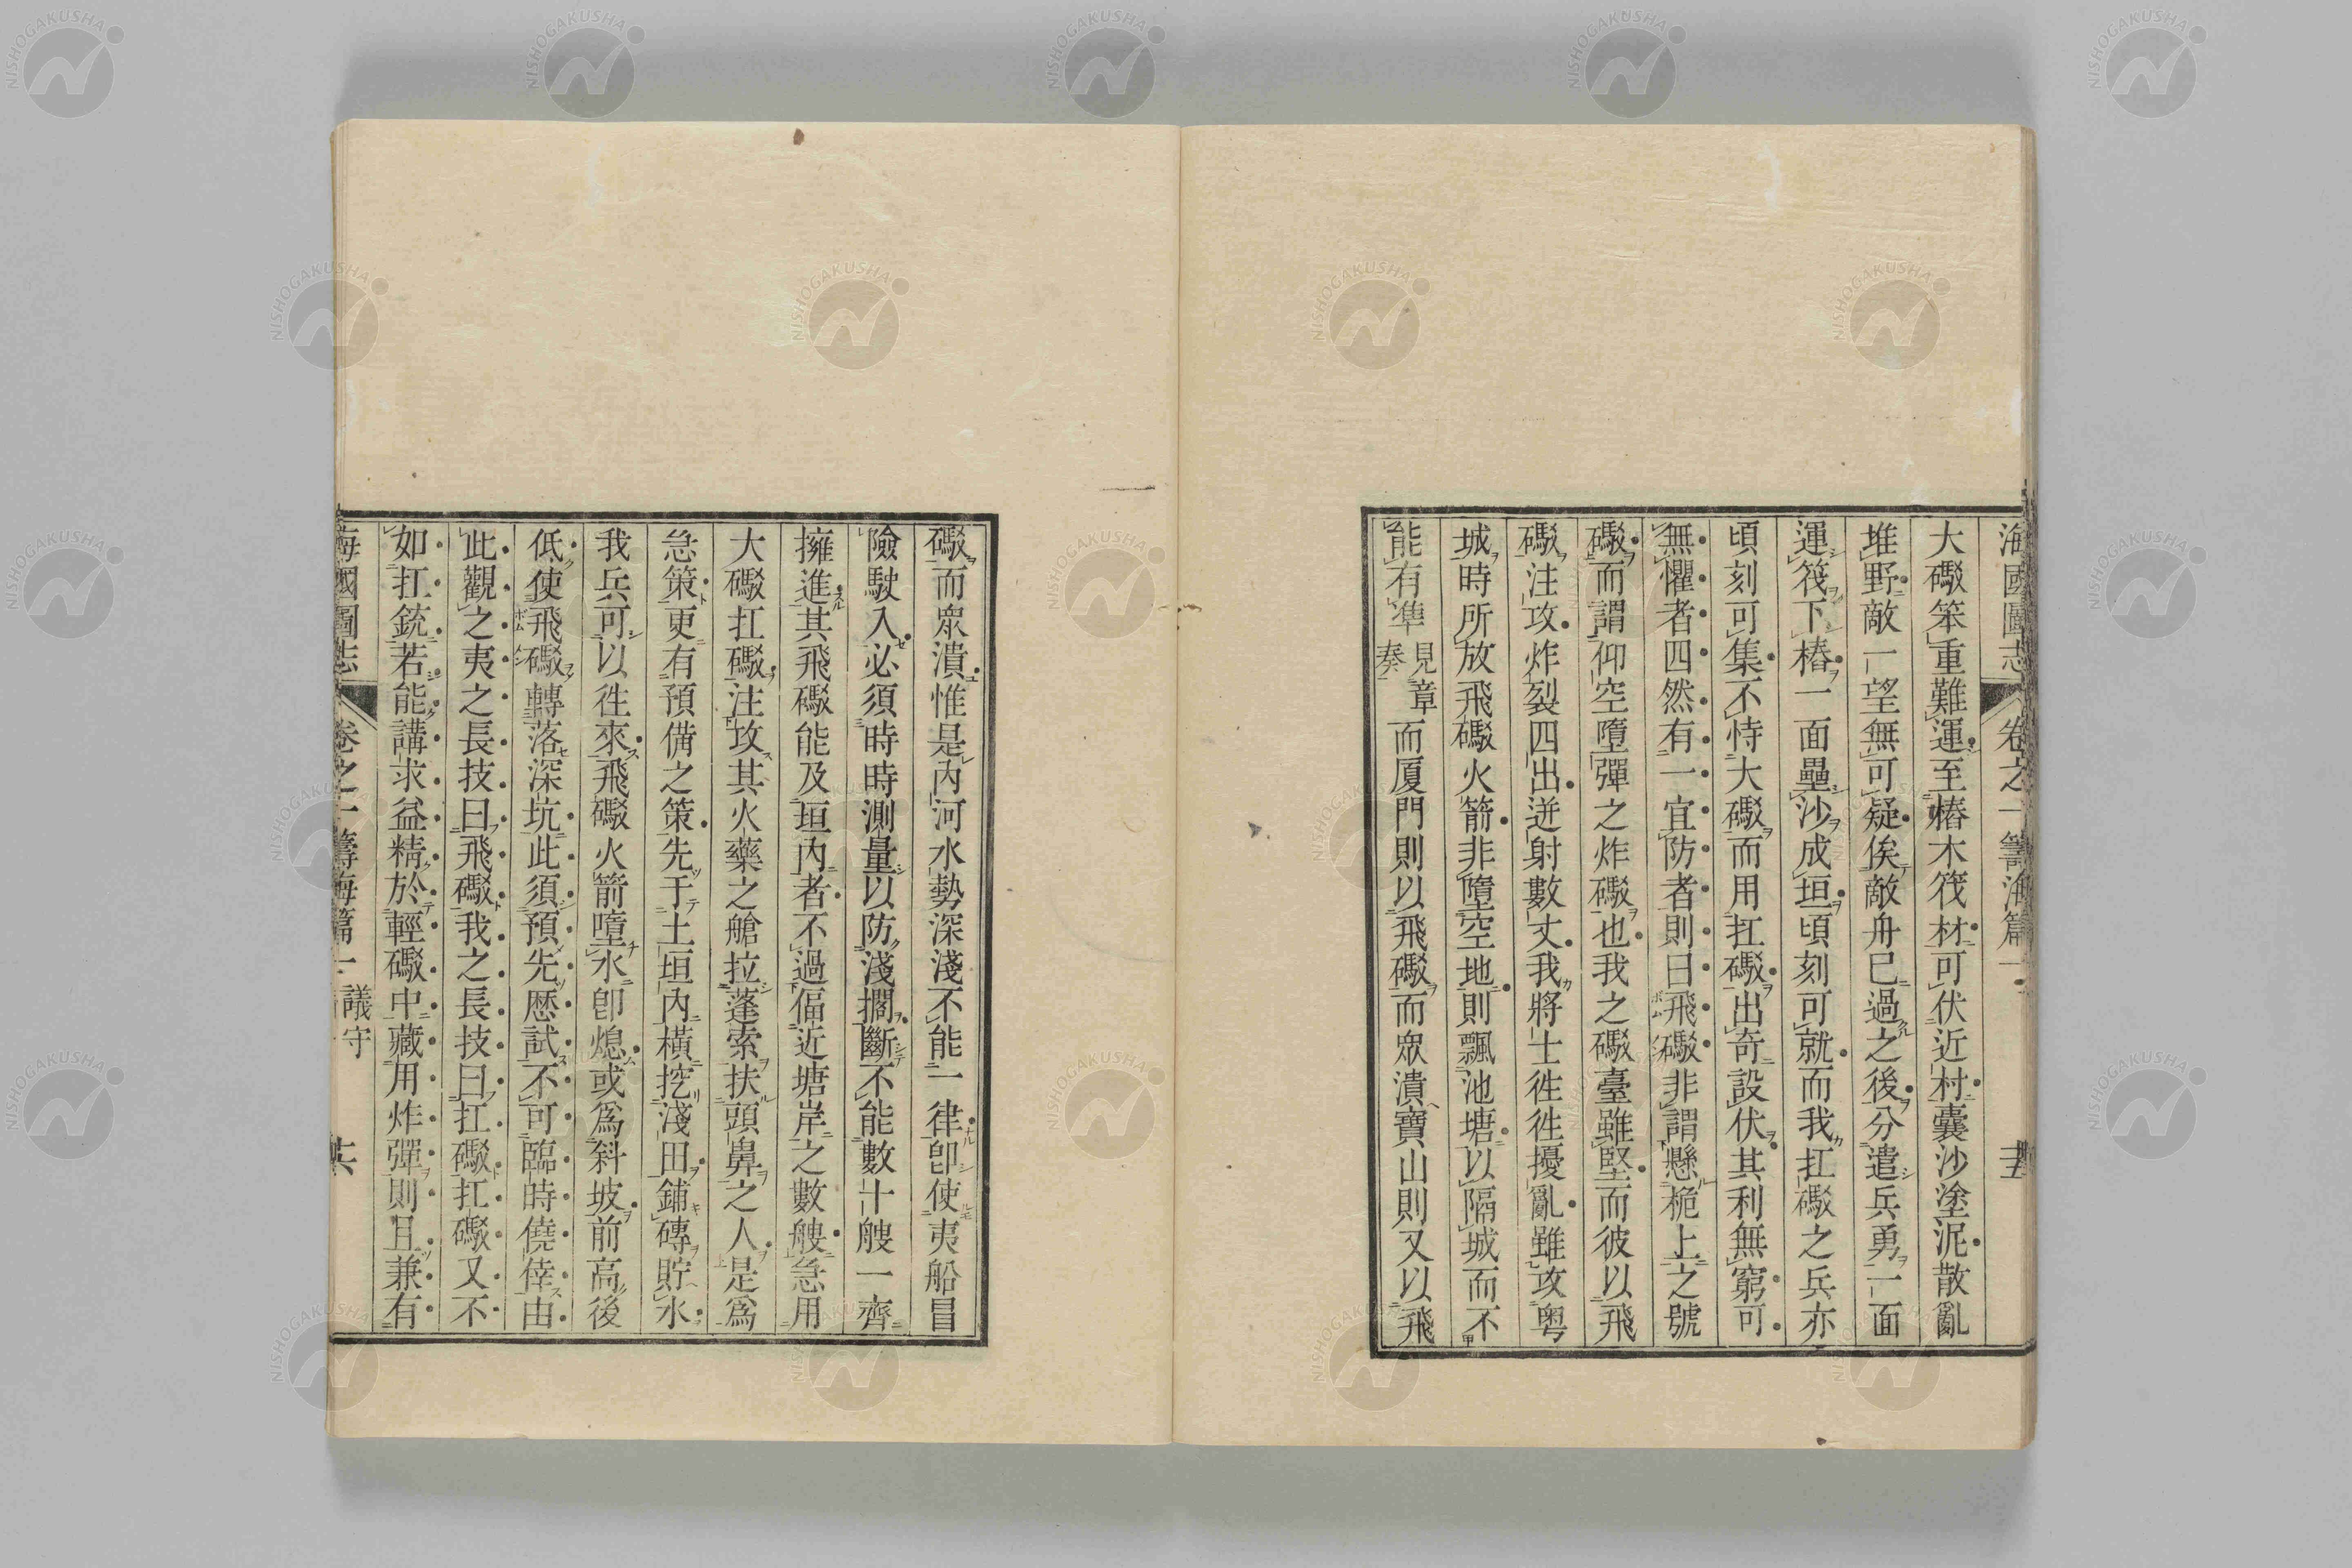 海國圖志 卷之一 籌海篇一 十五
大礮笨重難運至樁木筏材可伏近村囊沙塗泥散亂
堆野敵一望無可疑俟敵舟已過之後分遣兵勇一面
運筏下樁一面壘沙成垣頃刻可就而我扛礮之兵亦
頃刻可集不恃大礮而用扛礮出奇設伏其利無窮可
無懼者四然有一宜防者則曰飛礮非謂懸桅上之號
礮而謂仰空墮彈之炸礮也我之礮臺雖堅而彼以飛
礮注攻炸裂四出迸射數丈我將士徃徃擾亂雖攻粤
城時所放飛礮火箭非墮空地則飄池塘以隔城而不
能有準見章奏而厦門則以飛礮而眾潰寶山則又以飛
礮而眾潰惟是內河水勢深淺不能一律卽使夷船冒
險駛入必須時時測量以防淺擱斷不能數十艘一齊
擁進其飛礮能及垣內者不過偪近塘岸之數艘急用
大礮扛礮注攻其火藥之艙拉蓬索扶頭鼻之人是爲
急策更有預備之策先于土垣內橫挖淺田鋪磚貯水
我兵可以徃來飛礮火箭墮水卽熄或爲斜坡前高後
低使飛礮轉落深坑此須預先歷試不可臨時僥倖由
此觀之夷之長技曰飛礮我之長技曰扛礮扛礮又不
如扛銃若能講求益精於輕礮中藏用炸彈則且兼有
海國圖志 卷之一 籌海篇一 議守 十六